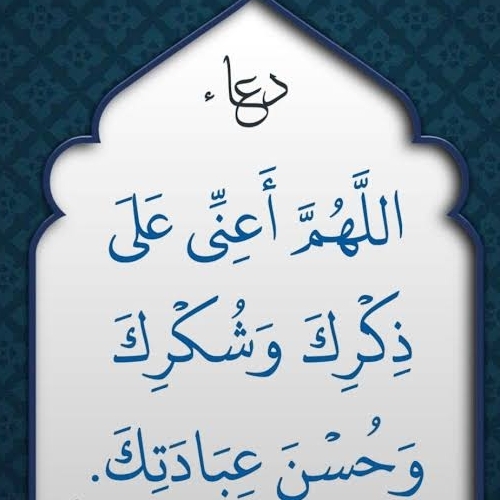 دعاء
اللَّهُمَّ أَعِنِّي عَلَى
ذِكْرِكَ وَشُكْرِكَ
وَحُسْنَ عِبَادَتِكَ.